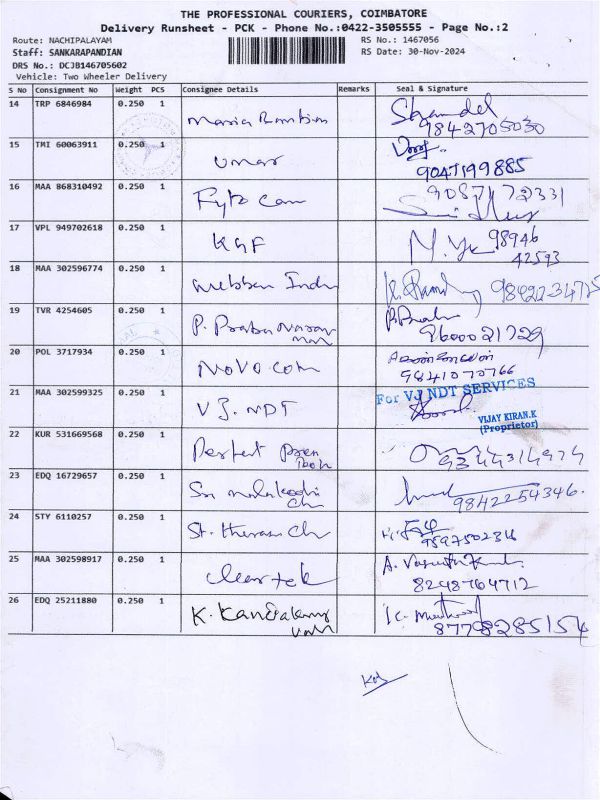 THE PROFESSIONAL COURIERS, COIMBATORE
Delivery Runsheet - PCK - Phone No.:0422-3505555 - Page No.:2
Route: NACHIPALAYAM
RS No.: 1467056
Staff: SANKARAPANDIAN
RS Date: 30-Nov-2024
DRS No.: DCJB146705602
Vehicle: Two Wheeler Delivery
S No Consignment No Weight PCS Consignee Details Remarks Seal & Signature
14 TRP 6846984 0.250 1 Maria
9842705030
15 TMI 60063911 0.250 1 Umar
9047199885
16 MAA 868310492 0.250 1 Fyto Cam 9087172331
17 VPL 949702618 0.250 1 KGF 98946
42593
18 MAA 302596774 0.250 1
19 TVR 4254605 0.250 1 P.
9600021729
20 POL 3717934 0.250 1 Novo.com
9841070766
21 MAA 302599325 0.250 1 VJ.NDT For VJ NDT SERVICES
VIJAY KIRAN.K
(Proprietor)
22 KUR 531669568 0.250 1
9344314974
23 EDQ 16729657 0.250 1 Sri
9842254346.
24 STY 6110257 0.250 1 St.
9597502316
25 MAA 302598917 0.250 1 Cleartek A.
8248764712
26 EDQ 25211880 0.250 1 K. K.
8778285154